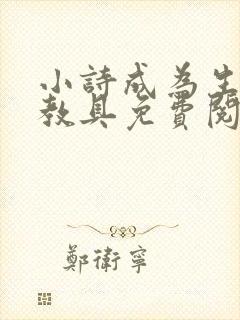 小詩成為生
教具免費閱
鄭衛寧